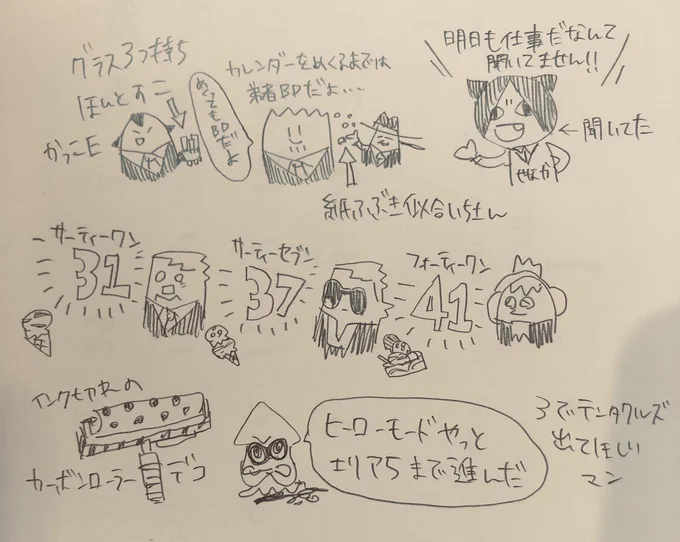 グラス3つ持ち
ほんとすこ
かっこE
めくってもBDだよ
カレンダーをめくるまでは
弟者BDだよ…
紙ふぶき似合いちまん
明日も仕事だなんて
聞いてません!!
←聞いてた
せなか
サーティーワン
31
サーティーセブン
37
フォーティーワン
41
インク切れの
カーボンローラーデコ
ヒーローモードやっと
エリア5まで進んだ
3でテンタクルズ
出てほしい
マン